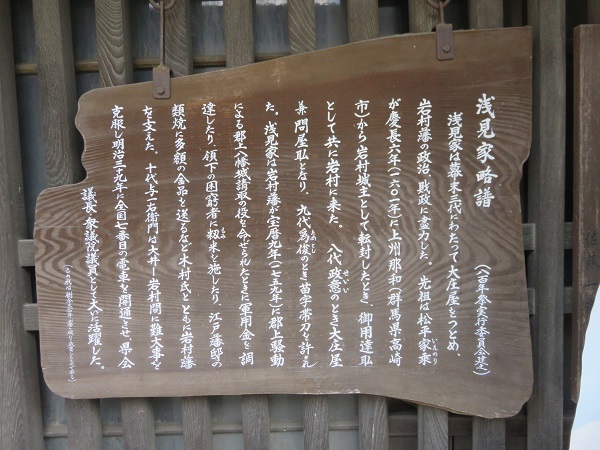 浅見家略譜
浅見家は幕末三代にわたって大庄屋をつとめ、
岩村藩の政治、財政に尽力した。先祖は松平家乗
いえのり
が慶長六年(一六〇一年)上州那和(群馬県高崎
市)から岩村城主として転封したとき、御用達取
として共に岩村に来た。八代政意のとき大庄屋
せいい
兼問屋取となり、九代為俊のとき苗字帯刀を許され
ためとし
た。浅見家は岩村藩が宝暦九年(一七五九年)に郡上騒動
による郡上八幡城請取の役を命ぜられたときに軍用金を調
達したり、領下の困窮者に籾米を施したり、江戸藩邸の
類焼に多額の金品を送るなど木村氏とともに岩村藩
を支えた。十代与一右衛門は大井—岩村間の難大事を
克服し明治三十九年に全国七番目の電車を開通させ県会
議長・衆議院議員として大いに活躍した。